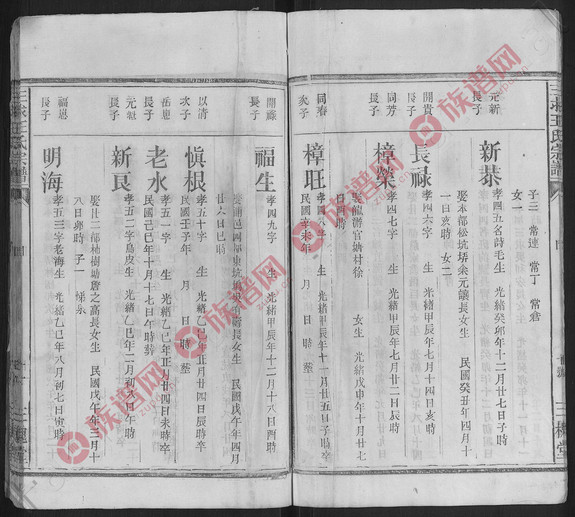 三槐王氏宗譜
三槐堂
子三 常連 常丁 常倉
女一
元新
長子
新恭
孝四五名詩毛生 光緒癸卯年十二月廿七日子時
娶本都松坑垪余元鎮長女生 民國癸丑年四月十
一日亥時 女二
開貴
長子
長祿
孝四六字 生 光緒甲辰年七月十四日亥時
同芳
長子
樟榮
孝四七字 生 光緒甲辰年七月廿二日辰時
娶龍游官塘村徐 生 光緒戊申年十月
日酉時
同春
次子
樟旺
孝四八字 生 光緒甲辰年十一月廿五日子時卒
民國辛未年 月 日 時葬
開祿
長子
福生
孝四九字 生 光緒甲辰年十二月十八日酉時
長女生 民國戊午年四月
廿六日巳時
以清
次子
慎根
孝五十字 生 光緒乙巳年正月廿四日辰時卒
民國壬子年 月 日 時葬
岳應
長子
老水
孝五一字 生 光緒乙巳年正月廿四日未時卒
民國己巳年十月十七日午時葬
元瓶
長子
新良
孝五二字烏皮生 光緒乙巳年二月初八日午時
娶廿二都柚樹塘啟之高長女生 民國戊午年三月十
八日卯時 子一 緑泉
福恩
長子
明海
孝五三字老海生 光緒乙巳年八月初七日寅時
族谱网